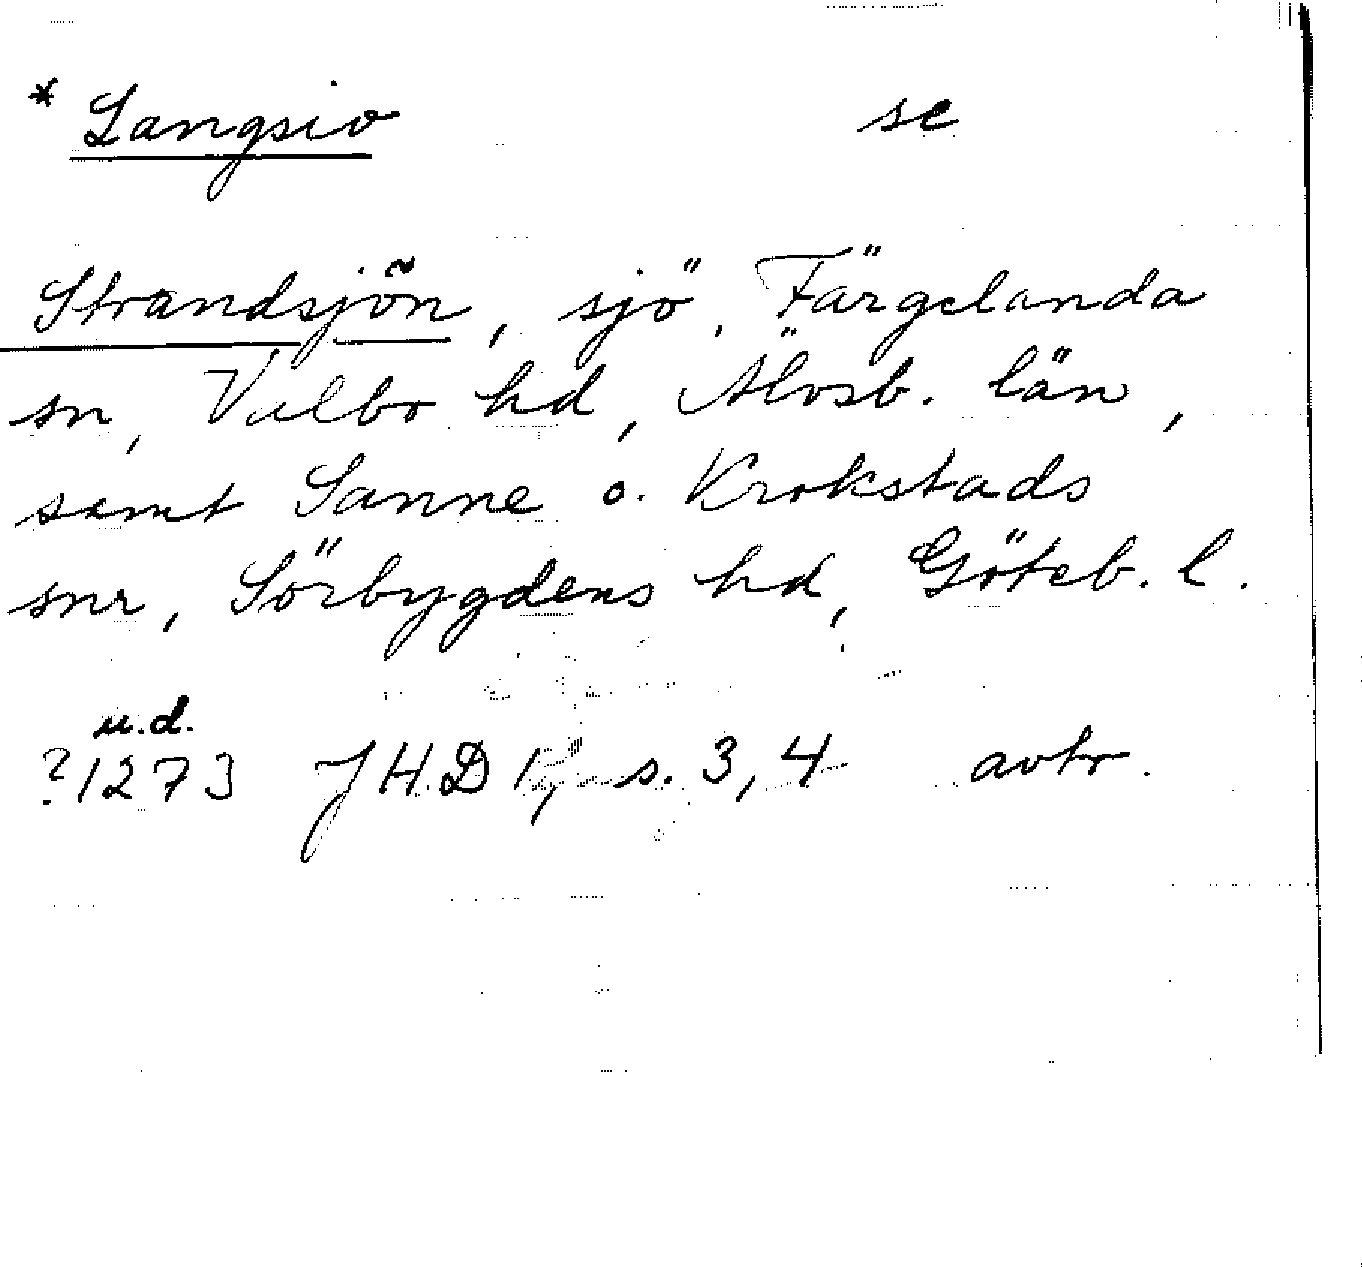 * Langsio se
Strandsjön, sjö, Färgelanda
sn, Valbo hd, Älvsb. län,
samt Sanne o. Krokstads
snr, Sörbygdens hd, Göteb. l.
u.d.
?1273 JHD 1, s. 3, 4 avtr.